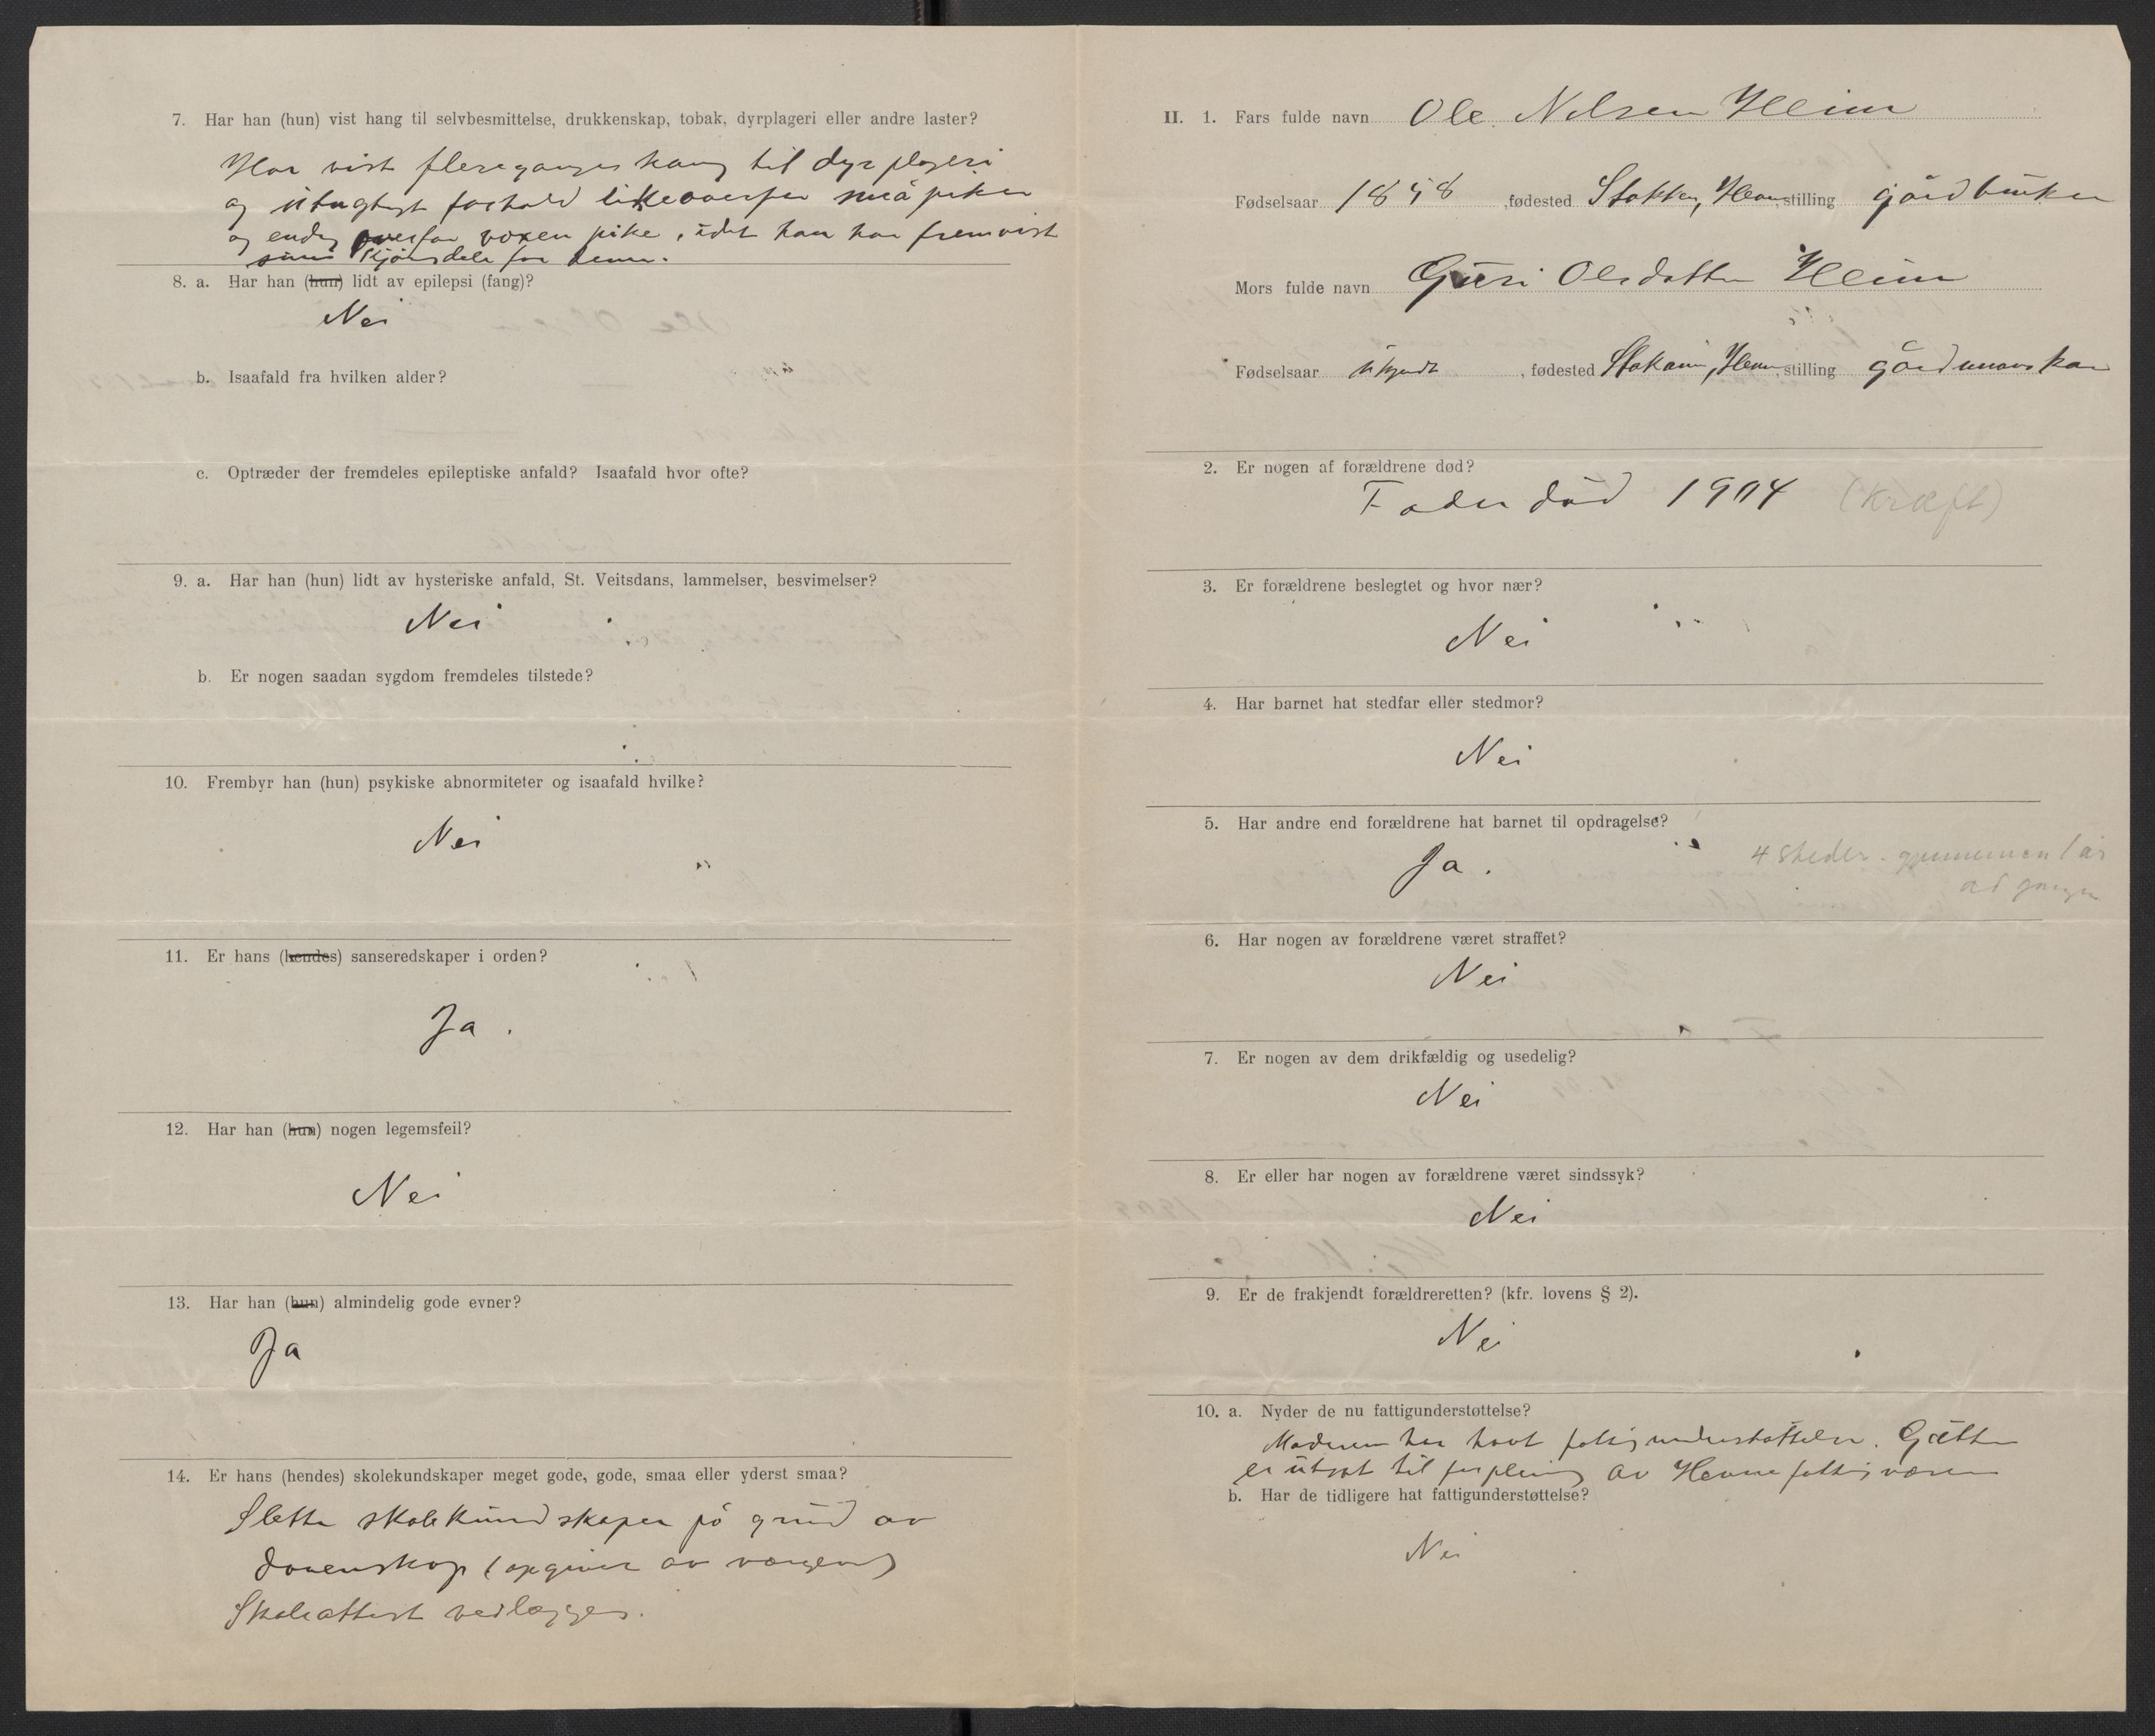 7. Har han (hun) vist hang til selvbesmittelse, drukkenskap, tobak, dyrplageri eller andre laster?
Har vist flereganges hang til dyrplageri
og utugtigt forhold likeoverfor små piker
og endog overfor voxen pike, idet han har fremvist
sine kjønsdele for denne.
8. a. Har han (hun) lidt av epilepsi (fang)?
Nei
b. Isaafald fra hvilken alder?
c. Optræder der fremdeles epileptiske anfald? Isaafald hvor ofte?
9. a. Har han (hun) lidt av hysteriske anfald, St. Veitsdans, lammelser, besvimelser?
Nei
b. Er nogen saadan sygdom fremdeles tilstede?
10. Frembyr han (hun) psykiske abnormiteter og isaafald hvilke?
Nei
11. Er hans (hendes) sanseredskaper i orden?
Ja.
12. Har han (hun) nogen legemsfeil?
Nei
13. Har han (hun) almindelig gode evner?
Ja
14. Er hans (hendes) skolekundskaper meget gode, gode, smaa eller yderst smaa?
Slette skolekundskaper på grund av
dovenskap (opgives av værgen)
Skoleattest vedlægges.
II. 1. Fars fulde navn Ole Nilsen Heim
Fødselsaar 1858, fødested Stokken, Hevne, stilling gårdbruker
Mors fulde navn Guri Olsdatter Heim
Fødselsaar ukjendt, fødested Hevne, stilling gårdmandskone
2. Er nogen af forældrene død?
Fader død 1904 (Kræft)
3. Er forældrene beslegtet og hvor nær?
Nei
4. Har barnet hat stedfar eller stedmor?
Nei
5. Har andre end forældrene hat barnet til opdragelse?
Ja. 4 steder. gjennemen 1 år
ad gangen
6. Har nogen av forældrene været straffet?
Nei
7. Er nogen av dem drikfældig og usedelig?
Nei
8. Er eller har nogen av forældrene været sindssyk?
Nei
9. Er de frakjendt forældreretten? (kfr. lovens § 2).
Nei
10. a. Nyder de nu fattigunderstøttelse?
Moderen har havt fattigunderstøttelse. Gutten
er utsat til forpleining av Hevne fattigvæsen
b. Har de tidligere hat fattigunderstøttelse?
Nei